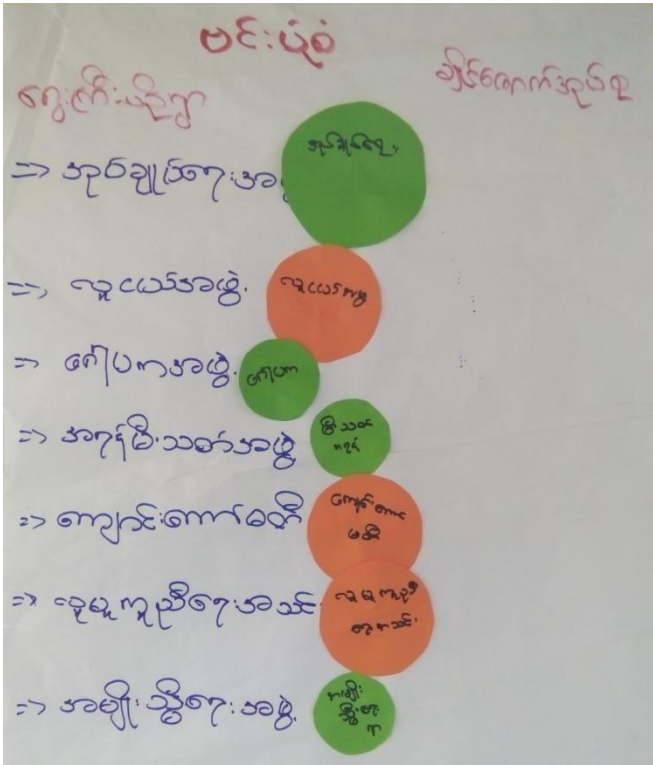 ဗင်းပုံစံ
ချိတ်ဆောက်အုပ်စု
ရွေးကြီးယိုရွာ
=> အုပ်ချုပ်ရေးအဖွဲ့
အုပ်ချုပ်ရေး
=> လူငယ်အဖွဲ့
လူငယ်အဖွဲ့
=> ဂေါပကအဖွဲ့
ဂေါပက
=> အရန်မီးသတ်အဖွဲ့
မီးသတ်
အရန်
=> ကျောင်းကော်မတီ
ကျောင်းကော်
မတီ
=> လူမှုကူညီရေးအသင်း
လူမှုကူညီ
ရေးအသင်း
=> အမျိုးသ္မီးရေးအဖွဲ့
အမျိုး
သ္မီးရေး